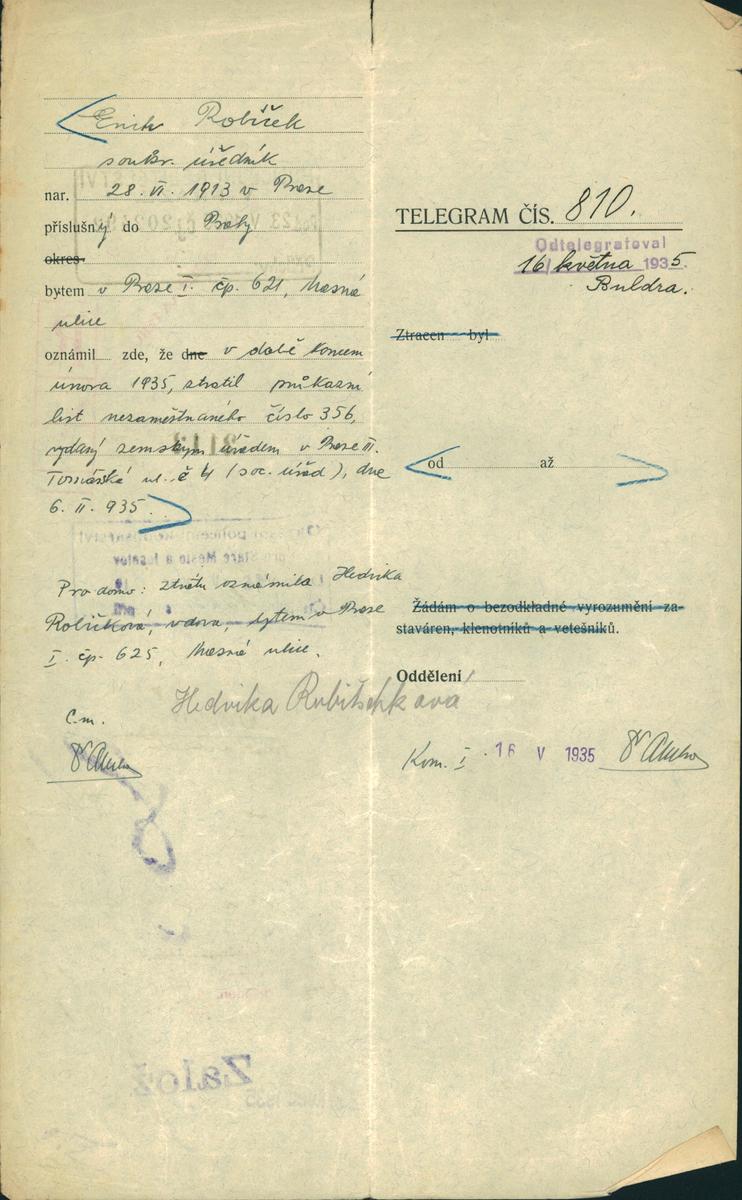 Erich Robíček
soukr. úředník
nar. 28. VI. 1913 v Praze
příslušný do Prahy
okres
bytem v Praze I. čp. 621, Masná
ulice
oznámil zde, že dne v době koncem
února 1935, ztratil průkazní
list nezaměstnaného číslo 356,
vydaný zemským úřadem v Praze III.
Tomášská ul. č 4 (soc. úřad), dne
6. II. 935.
Pro domo: ztrátu oznámila Hedvika
Robíčková, vdova, bytem v Praze
I. čp. 625, Masná ulice.
Hedvika Robitschková
C.m.
TELEGRAM ČÍS. 810.
Odtelegrafoval
16 května 1935.
Buldra.
Ztracen byl
od až
Žádám o bezodkladné vyrozumění za-
staváren, klenotníků a vetešníků.
Oddělení
Kom. I. 16 V 1935
Založ